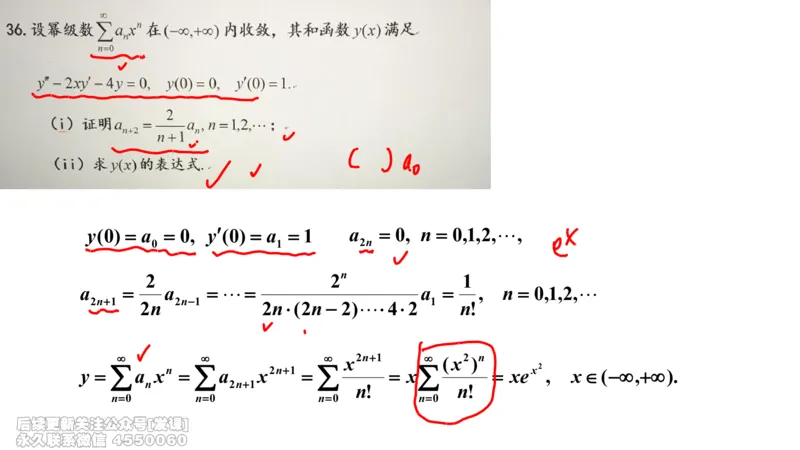 36.设幂级数 $\sum_{n=0}^{\infty} a_n x^n$ 在 $(-\infty,+\infty)$ 内收敛，其和函数 $y(x)$ 满足
$y''-2xy'-4y=0,\quad y(0)=0,\quad y'(0)=1.$
(i) 证明 $a_{n+2}=\frac{2}{n+1}a_n, n=1,2,\cdots;$
(ii) 求 $y(x)$ 的表达式. ( ) $a_0$
$y(0)=a_0=0,\ y'(0)=a_1=1 \quad a_{2n}=0,\ n=0,1,2,\cdots,$ $e^x$
$a_{2n+1}=\frac{2}{2n}a_{2n-1}=\cdots=\frac{2^n}{2n\cdot(2n-2)\cdots 4\cdot 2}a_1=\frac{1}{n!},\quad n=0,1,2,\cdots$
$y=\sum_{n=0}^{\infty}a_n x^n=\sum_{n=0}^{\infty}a_{2n+1}x^{2n+1}=\sum_{n=0}^{\infty}\frac{x^{2n+1}}{n!}=x\sum_{n=0}^{\infty}\frac{(x^2)^n}{n!}=xe^{x^2},\quad x\in(-\infty,+\infty).$
后续更新关注公众号[掌课]
永久联系微信 4550060